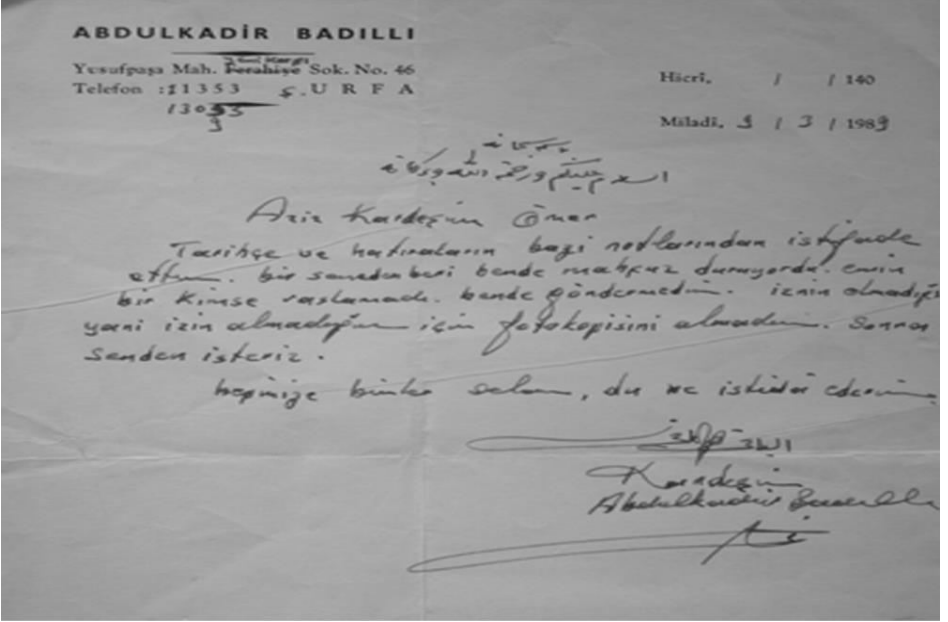 ABDULKADİR BADILLI
Yusufpaşa Mah. Ferahiye Sok. No. 46
Telefon : 11353 Ş. URFA
13053
9
Hicrî, / / 140
Miladî, 9 / 3 / 1989
باسمه سبحانه
السلام عليكم ورحمة الله وبركاته
Aziz Kardeşim Ömer
Tarihçe ve hatıraların bazı notlarından istifade
ettim. bir senedenberi bende mahfuz duruyordu. emin
bir kimse raslamadı. bende göndermedim. iznin olmadığı
yani izin almadığım için fotokopisini almadım. Sonra
senden isteriz.
hepinize binler selam, dua ve istirham ederim.
الباقي هو الباقي
Kardeşin
Abdulkadir Badıllı